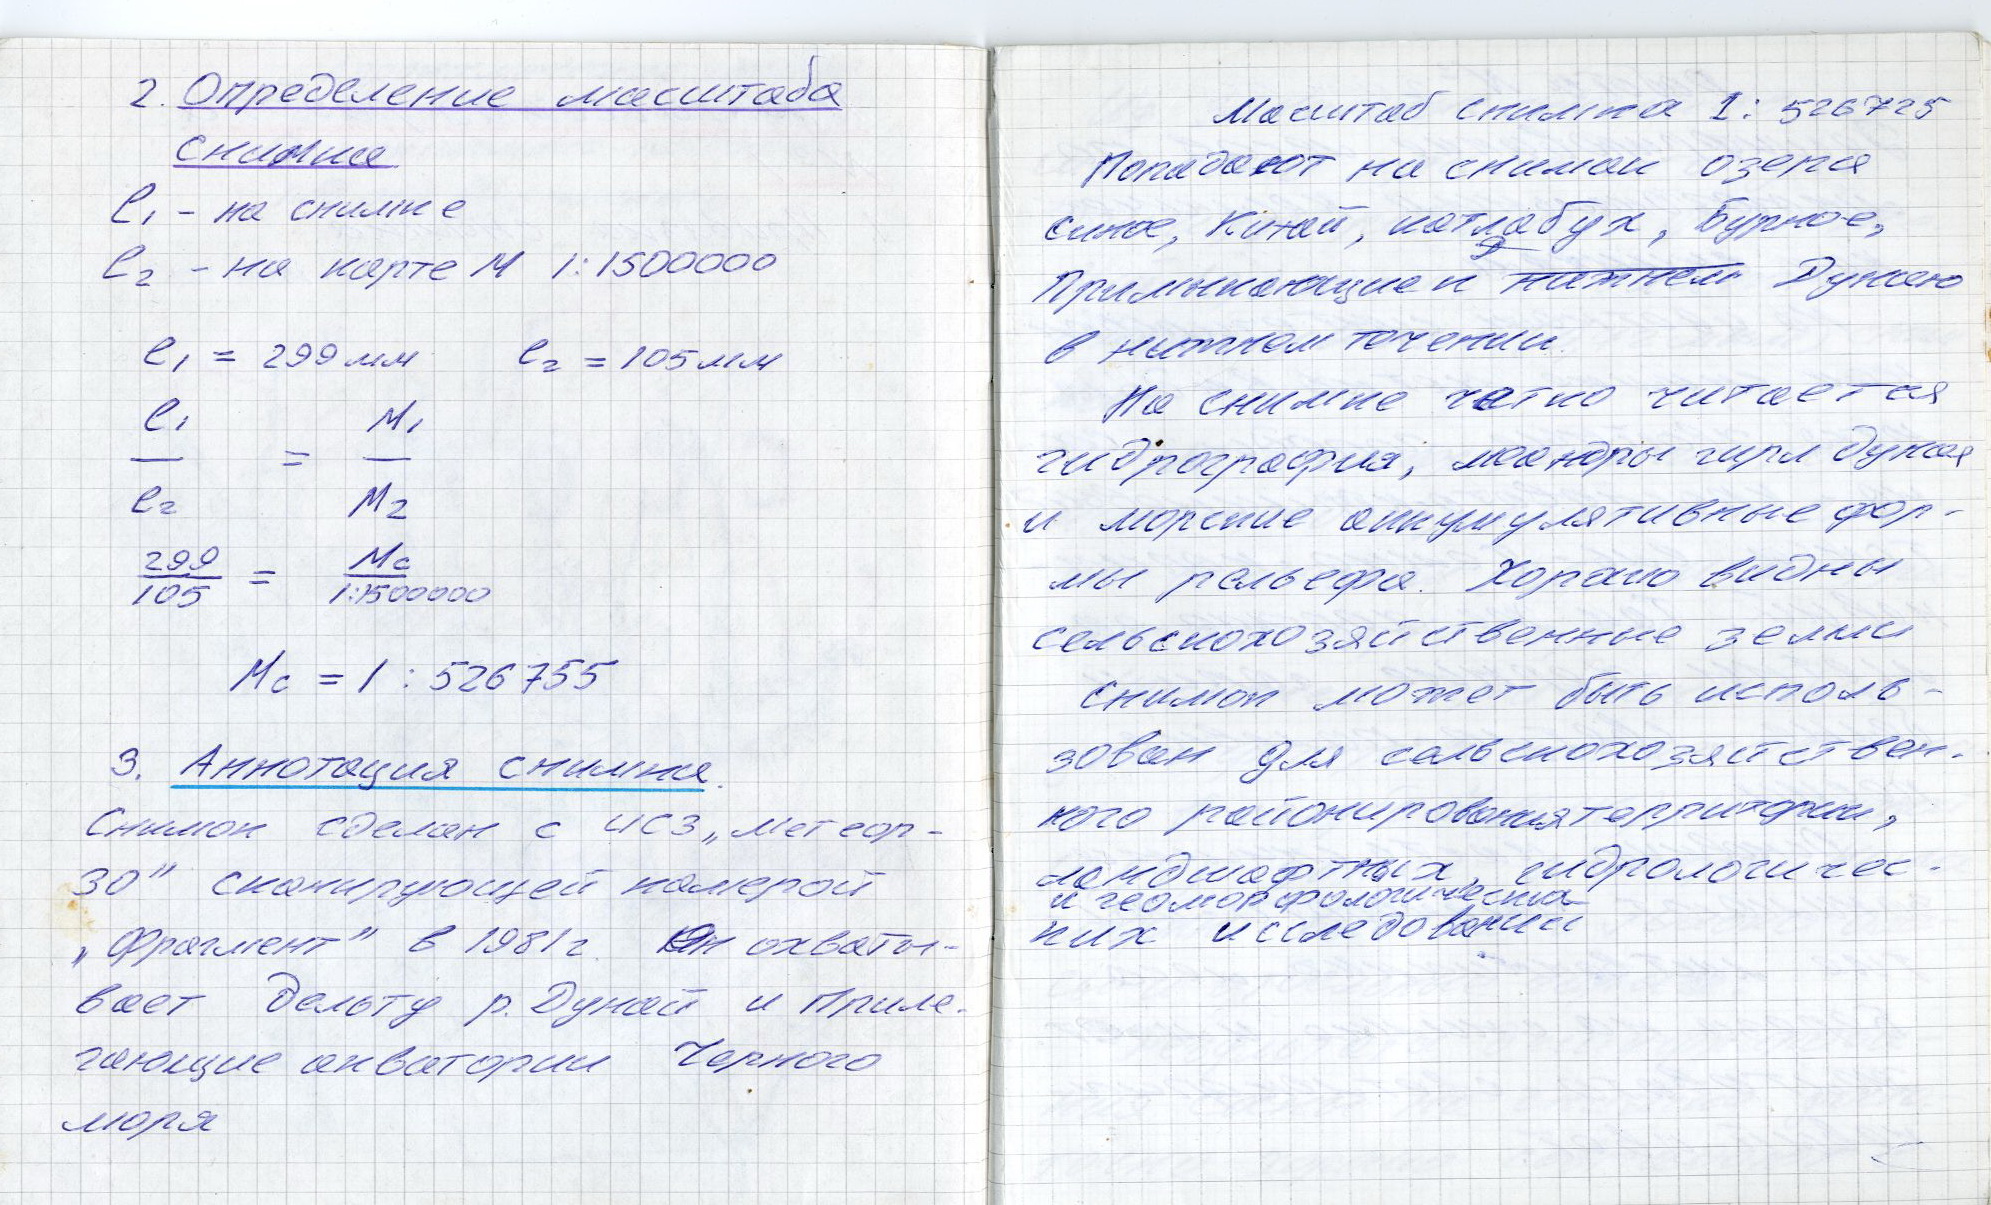 2. Определение масштаба
снимка
l₁ – на снимке
l₂ – на карте М 1:1500000
l₁ = 299 мм l₂ = 105 мм
l₁ / l₂ = М₁ / М₂
299 / 105 = Мс / 1:1500000
Мс = 1 : 526755
3. Аннотация снимка.
Снимок сделан с ИСЗ „Метеор-
30" сканирующей камерой
„Фрагмент" в 1981 г. Он охваты-
вает дельту р. Дунай и приле-
гающие акватории Черного
моря
Масштаб снимка 1: 526725
Попадают на снимок озера
синое, Китай, катлабух, Бурное,
Примыкающие к нижнем Дунаю
в нижнем течении.
На снимке четко читается
гидрография, меандры гирл дуная
и морские аккумулятивные фор-
мы рельефа. Хорошо видны
сельскохозяйственные земли
снимок может быть исполь-
зован для сельскохозяйствен-
ного районирования территории,
ландшафтных, гидрологичес-
и геоморфологических
ких исследований